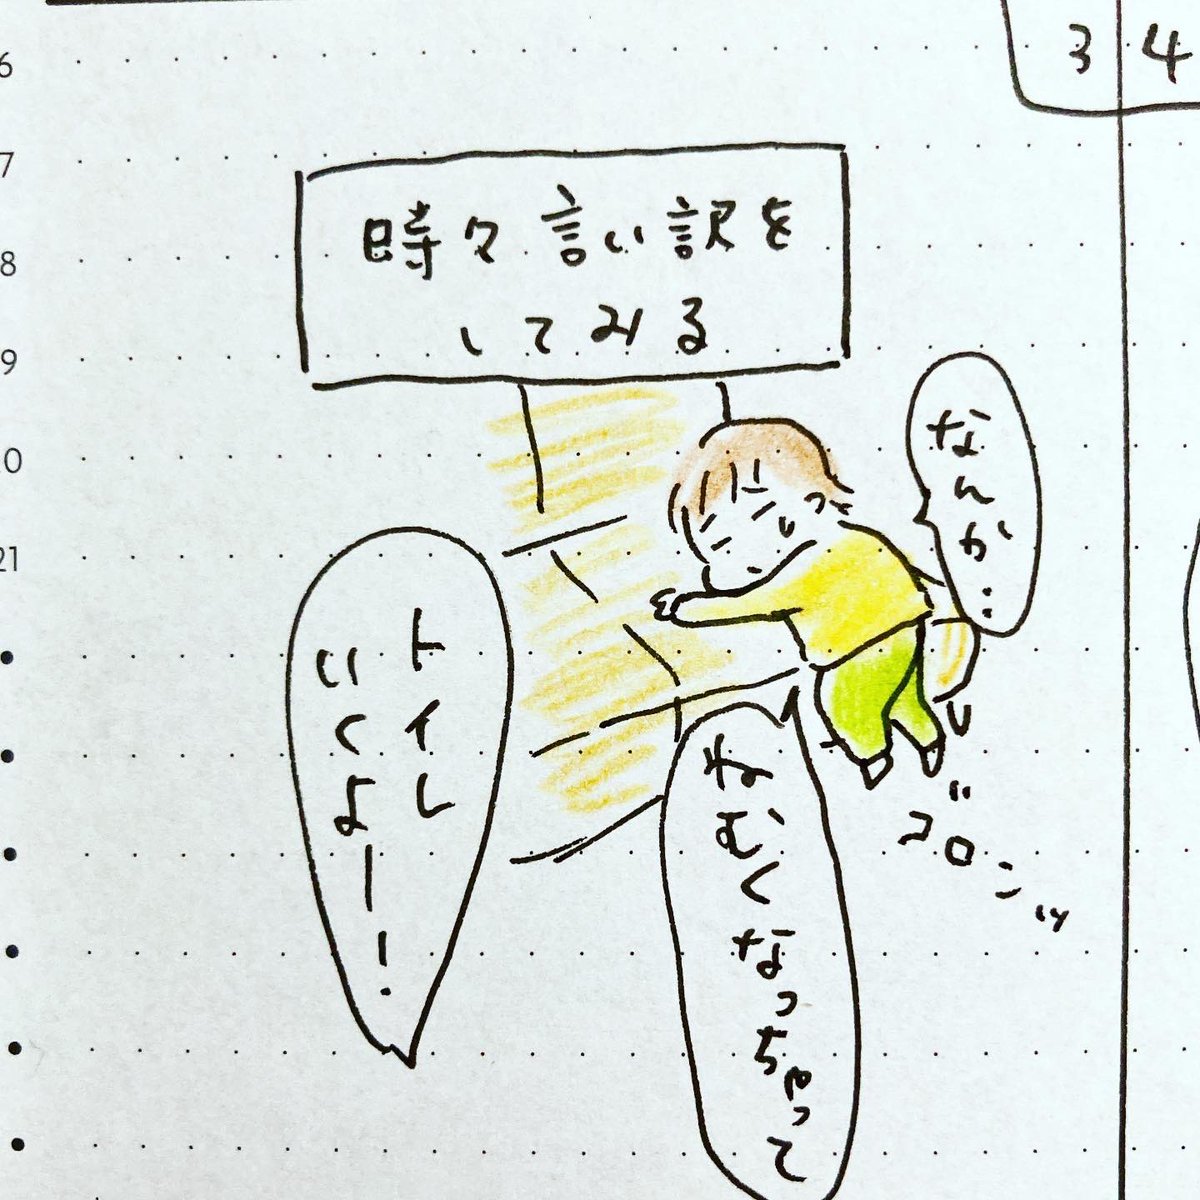 3 4
6
7
8
9
0
21
時々言い訳を
してみる
なんか…
トイレ
いくよー!
ねむくなっちゃって
ゴロンッ